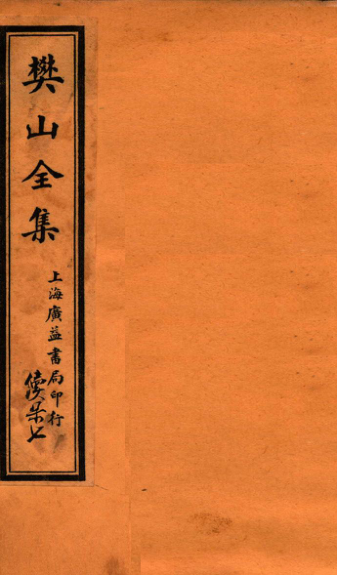 樊山全集
上海廣益書局印行